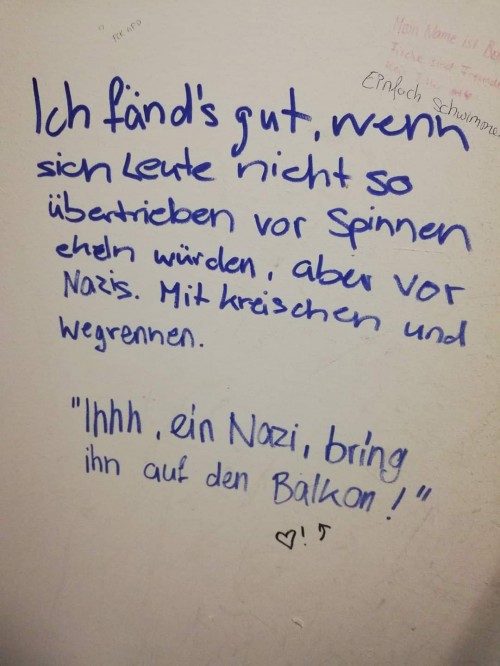 Mein Name ist
Einfach schwimmen
Ich fänd's gut, wenn
sich Leute nicht so
übertrieben vor Spinnen
ekeln würden, aber vor
Nazis. Mit kreischen und
wegrennen.
"Ihhh, ein Nazi, bring
ihn auf den Balkon!"
♡!